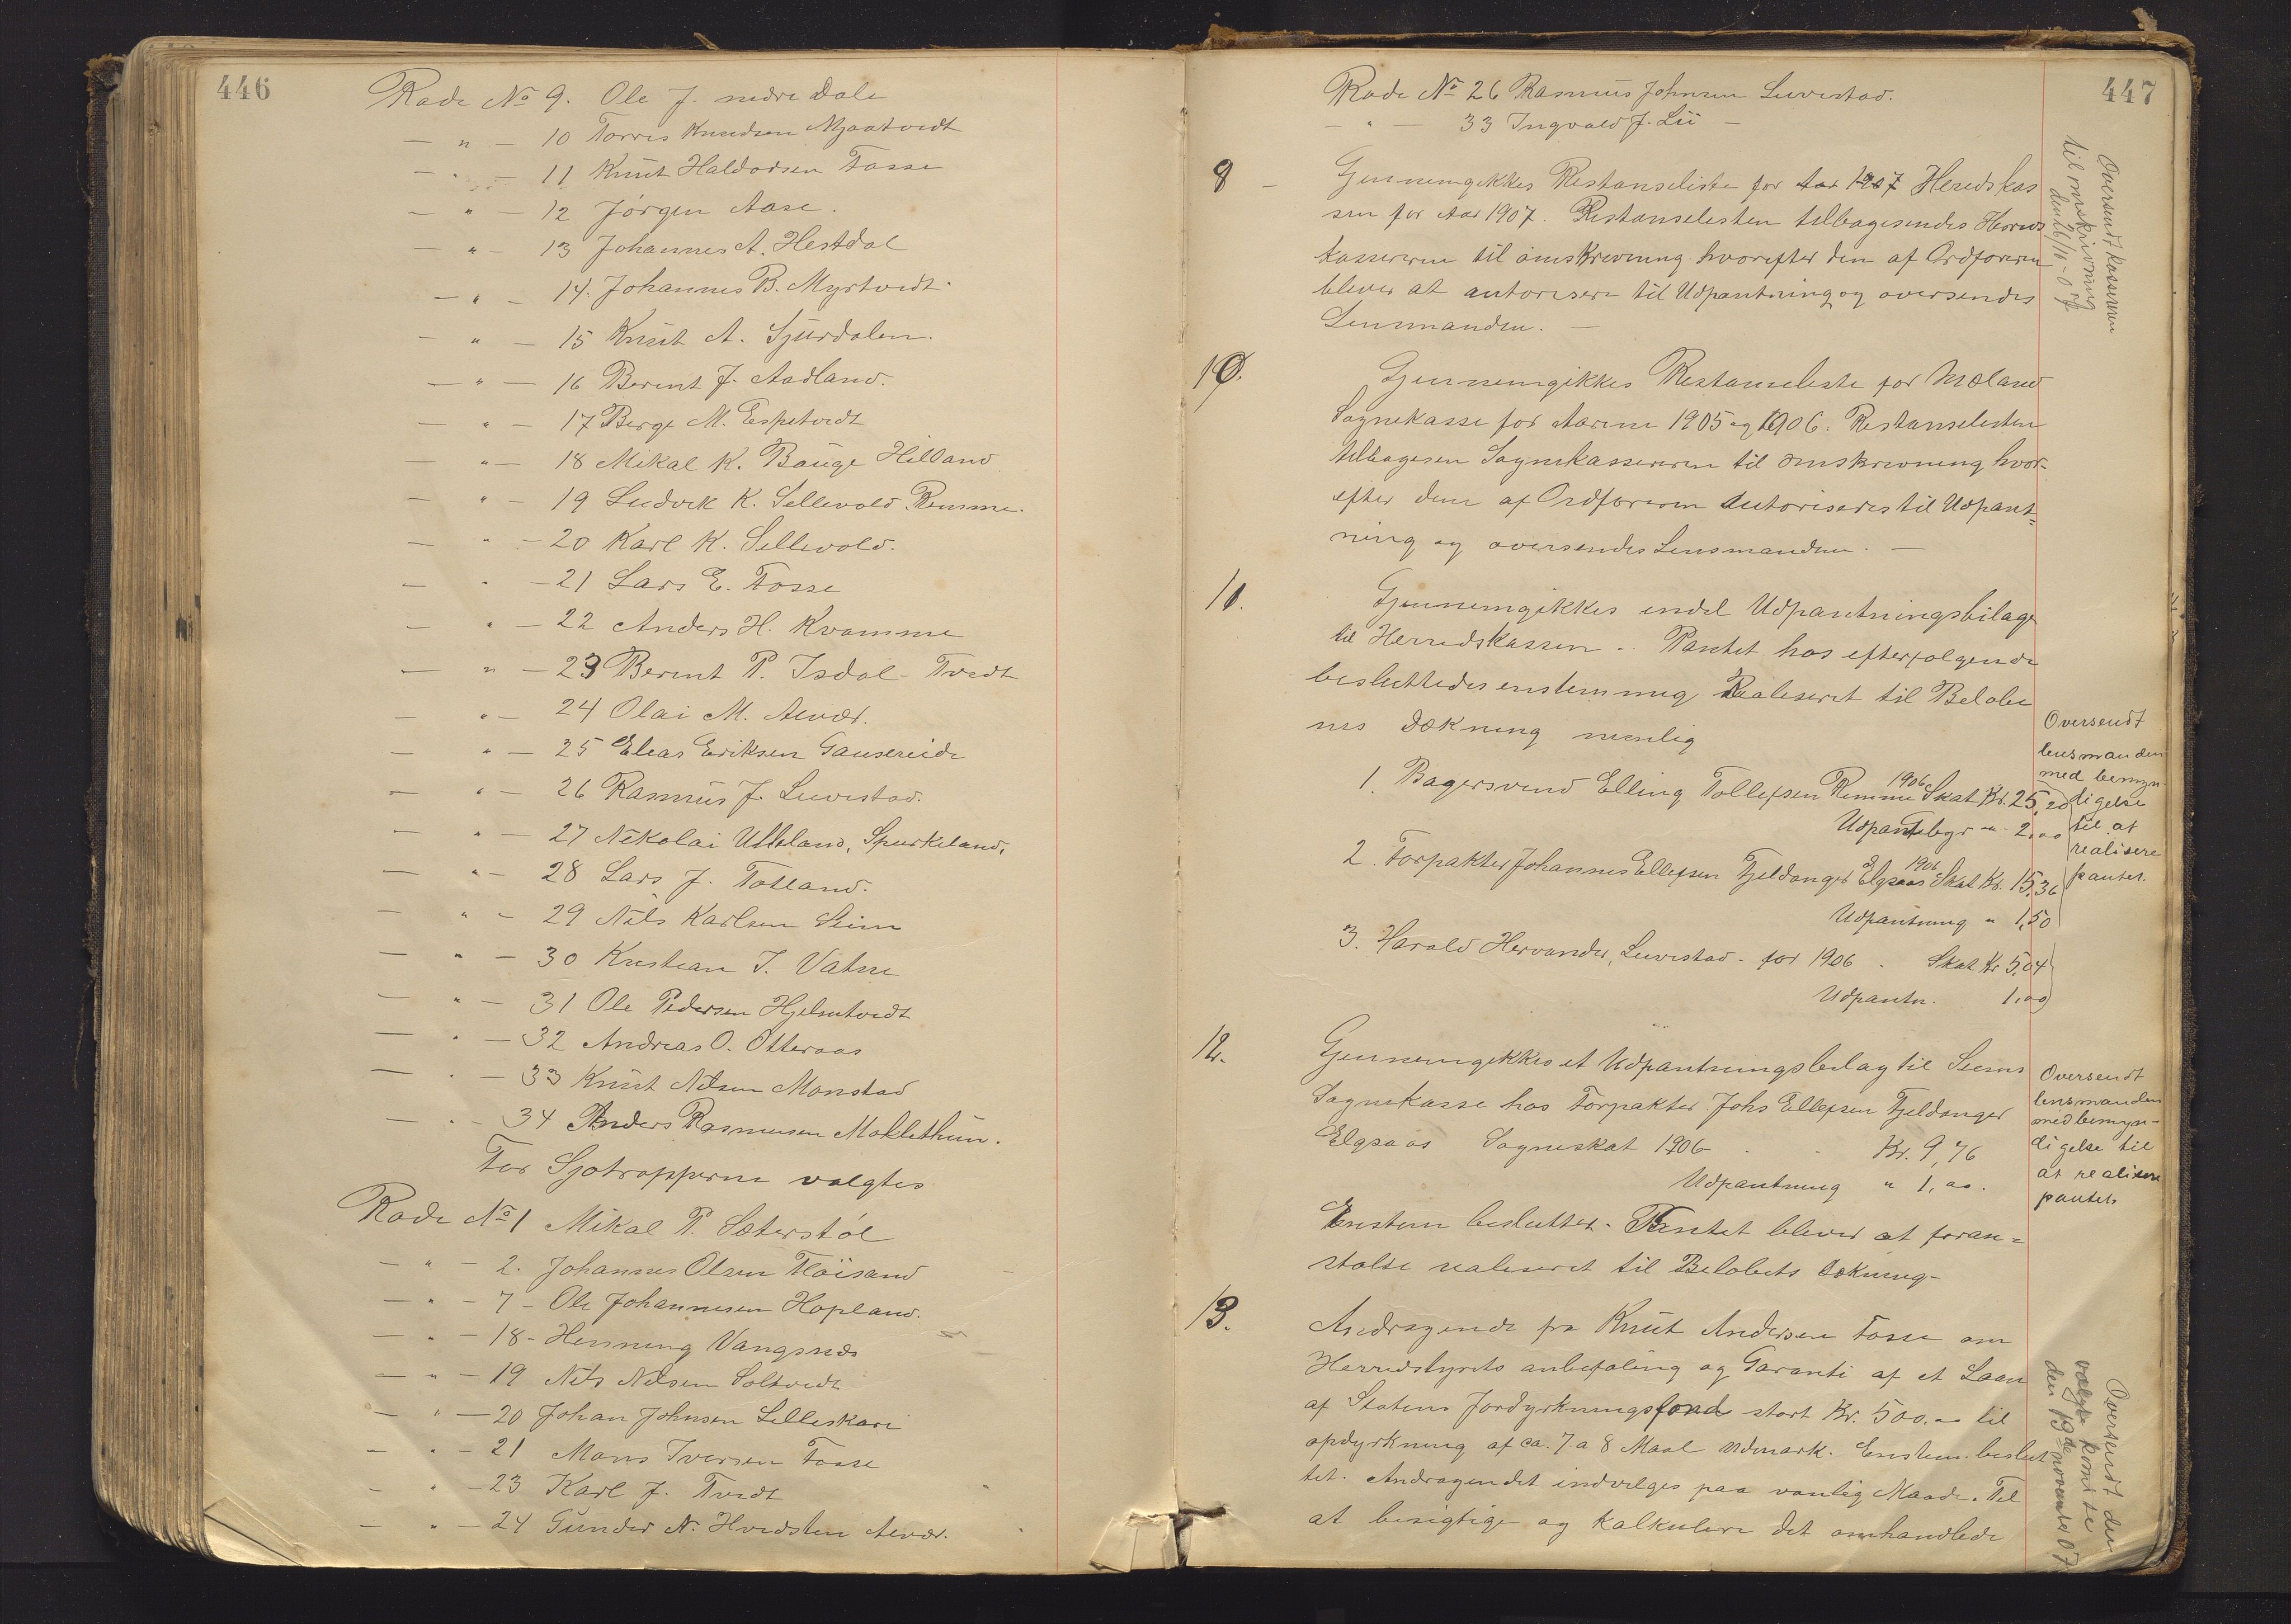 446
Rode No 9. Ole J. nedre Dale
— " — 10 Torris Knudsen Mjaatvedt
— " — 11 Knut Haldorsen Fosse
— " — 12 Jørgen Aase.
— " — 13 Johannes A. Hestdal
— " — 14. Johannes B. Myrtvedt.
— " — 15 Knut A. Sjurdalen.
— " — 16 Berent J. Aadland.
— " — 17 Berge M. Espetvedt
— " — 18 Mikal K. Bauge Hilland
— " — 19 Ludvik K. Sellevold Remme.
— " — 20 Karl K. Sellevold.
— " — 21 Lars E. Fosse
— " — 22 Anders H. Kvamme
— " — 23 Berent P. Isdal - Tvedt
— " — 24 Olai M. Alvær.
— " — 25 Elias Eriksen Gausereide
— " — 26 Rasmus J. Leverstad.
— " — 27 Nikolai Utkeland, Spurkeland.
— " — 28 Lars J. Totland.
— " — 29 Nils Karlsen Seim
— " — 30 Kristian I. Vatne
— " — 31 Ole Pedersen Hjelmtvedt
— " — 32 Andreas O. Otteraas
— " — 33 Knut Nilsen Monstad
— " — 34 Anders Rasmusen Moklethun.
For Sjøtropperne valgtes
Rode No 1 Mikal P. Sæterstøl
— " — 2. Johannes Olsen Fløisand
— " — 7 - Ole Johannesen Hopland.
— " — 18 - Henning Vangsnes
— " — 19 Nils Nilsen Soltvedt
— " — 20 Johan Johnsen Lilleskare
— " — 21 Mons Iversen Fosse
— " — 23 Karl J. Tvedt
— " — 24 Gunder N. Hvidsten Alvær.
447
Rode No 26 Rasmus Johnsen Leverstad.
— " — 33 Ingvald J. Lii —
9 - Gjennemgikkes Restanseliste for Aar 1907 Heredskas
sen for Aar 1907. Restanselisten tilbagesendes Herreds
kassereren til omskrivning hvorefter den af Ordføreren
bliver at autorisere til Udpantning og oversendes
Lensmanden. —
Oversendt kassereren
til omskrivning
den 16/11-07
10. Gjennemgikkes Restanseliste for Mæland
Sognekasse for Aarene 1905 og 1906. Restanselisten
tilbagesen Sognekassereren til omskrivning hvor-
efter den af Ordføreren Autoriseres til Udpant=
ning og oversendes Lensmanden. —
11. Gjennemgikkes endel Udpantningsbilage
til Herredskassen - Pantet hos efterfølgende
besluttedes enstemmig Realiseret til Beløbe
nes Dækning nemlig
1. Bagersvend Elling Tollefsen Remme 1906 Skat Kr. 25,20
Udpantgbyr " 2,00
2. Forpakter Johannes Ellefsen Fjeldanger Elgsaas 1906 Skat Kr. 15,36
Udpantning " 1,50
3. Harald Hervander, Leverstad - for 1906 . Skat Kr 5,04
Udpantn. 1,00
Oversendt
lensmanden
med bemyn
digelse
til at
realisere
pantet.
12. Gjennemgikkes et Udpantningsbilag til Seims
Sognekasse hos Forpakter Johs Ellefsen Fjeldanger
Elgsaas Sogneskat 1906 . . Kr. 9,76
Udpantning " 1,00.
Enstem besluttet - Pantet bliver at foran=
stalte realiseret til Beløbets Dækning -
Oversendt
lensmanden
med bemyn-
digelse til
at realisere
pantet.
13. Andragende fra Knut Andersen Fosse om
Herredstyrets anbefaling og Garanti af et Laan
af Statens Jorddyrkningsfond stort Kr. 500.00 til
opdyrkning af ca. 7 a 8 Maal Udmark. Enstem. beslut
tet. Andragendet indvilges paa vanlig Maade. Til
at besigtige og kalkulere det omhandlede
Oversendt den
valgte komite
den 19de novembr 07